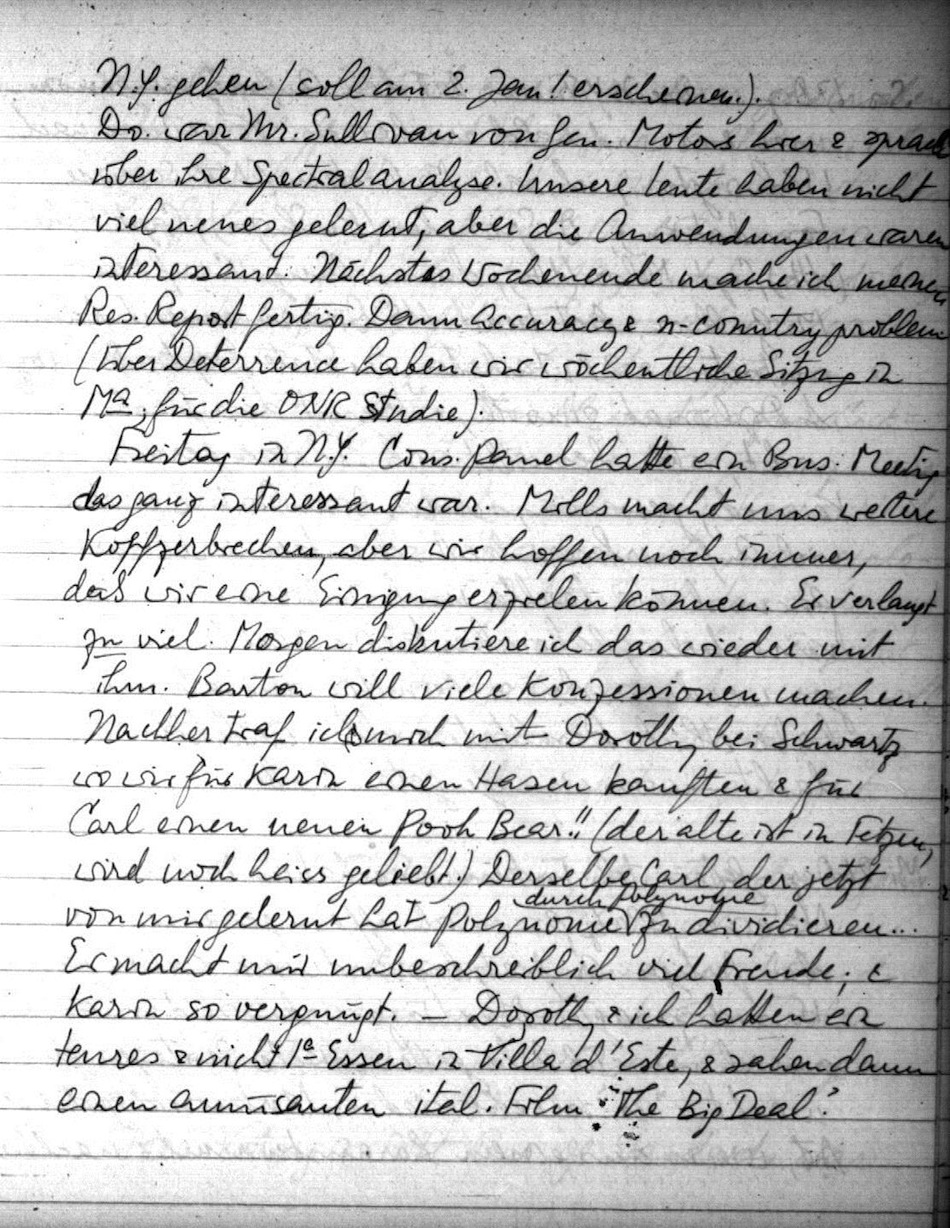 N.Y. gehen (soll am 2. Jan! erscheinen.).
Do. war Mr. Sullivan von Gen. Motors hier & sprach
über ihre Spectralanalyse. Unsere Leute haben nicht
viel neues gelernt, aber die Anwendungen waren
interessant. Nächstes Wochenende mache ich meinen
Res. Report fertig. Dann Accuracy & n-country problem
(über Deterrence haben wir wöchentliche Sitzung in
Ma, für die ONR Studie).
Freitag in N.Y. Cons. Panel hatte ein Bus. Meeting
das ganz interessant war. Mills macht uns weitere
Kopfzerbrechen, aber wir hoffen noch immer,
daß wir eine Einigung erzielen können. Er verlangt
zu viel. Morgen diskutiere ich das wieder mit
ihm. Barton will viele Konzessionen machen.
Nachher traf ich mich mit Dorothy bei Schwartz
wo wir für Karin einen Hasen kauften & für
Carl einen neuen Pooh Bear!! (der alte ist in Fetzen,
wird noch heiss geliebt.) Derselbe Carl, der jetzt
von mir gelernt hat Polynome durch Polynome zu dividieren...
Er macht mir unbeschreiblich viel Freude, &
Karin so vergnügt. – Dorothy & ich hatten ein
teures & nicht 1a Essen in Villa d'Este, & sahen dann
einen amüsanten ital. Film "The Big Deal".